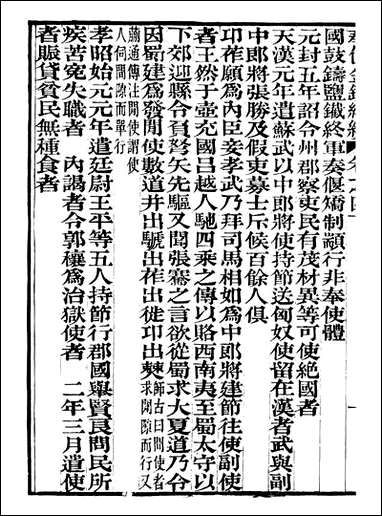 國鼓鑄鹽鐵終軍奏偃矯制顓行非奉使體
元封五年詔令州郡察吏民有茂材異等可使絕國者
天漢元年遣蘇武以中郎將使持節送匈奴使留在漢者武與副
中郎將張勝及假吏募士斥候百餘人俱
卭莋願為內臣妾孝武乃拜司馬相如為中郎將建節往使副使
者王然于壺充國呂越人馳四乘之傳以賂西南夷至蜀太守以
下郊迎縣令負弩矢先驅又聞張騫之言欲從蜀求大夏道乃令
因蜀建為發閒使數道并出出駹出莋出徙卭出僰師古曰閒使者求閒隙而行又
蕳通傳注閒使謂使人伺閒隙而單行
孝昭始元元年遣廷尉王平等五人持節行郡國舉賢良問民所
疾苦寃失職者 內謁者令郭穰為治獄使者 二年三月遣使
者賑貸貧民無種食者